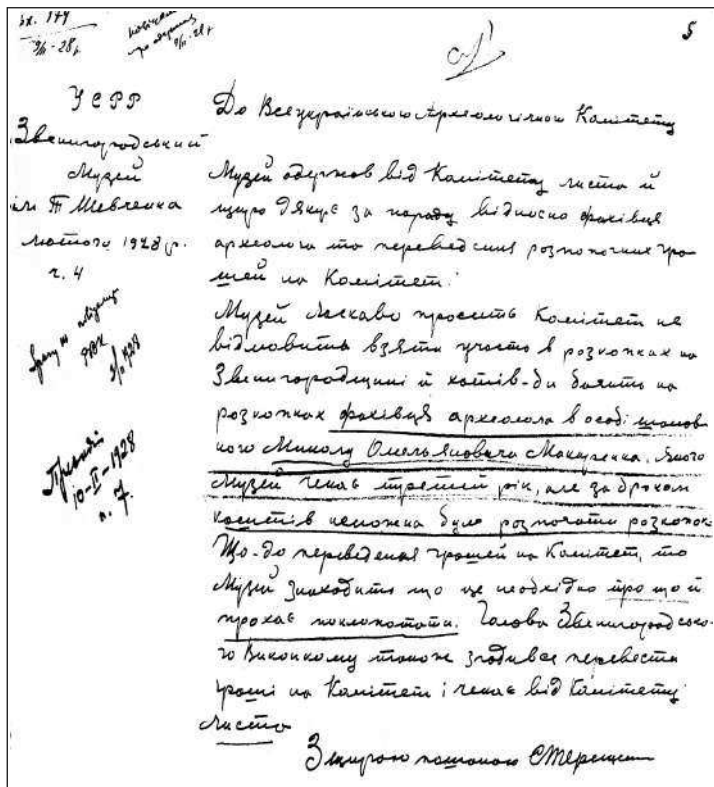 вх. 174
9/II-28 р.
5
УСРР
Звенигородський
Музей
ім Т Шевченка
лютого 1928 р.
ч. 4
9/II 1928
10-II-1928
п. 7.
До Всеукраїнського Археологічного Комітету
Музей одержав від Комітету листа й
щиро дякує за пораду відносно фахівця
археолога та переведення розкопочних гро
шей на Комітет.
Музей ласкаво просить Комітет не
відмовити взяти участь в розкопках на
Звенигородщині й хотів-би бачить на
розкопках фахівця археолога в особі шанов
ного Миколу Омельяновича Макаренка, якого
Музей чекає третій рік, але за браком
коштів неможна було розпочати розкопок
Що-до переведення грошей на Комітет, то
Музей знаходить що це необхідно про що й
прохає поклопотати. Голова Звенигородсько-
го Виконкому також згодився перевести
гроші на Комітет і чекає від Комітету
листа
З щирою пошаною СТерещен